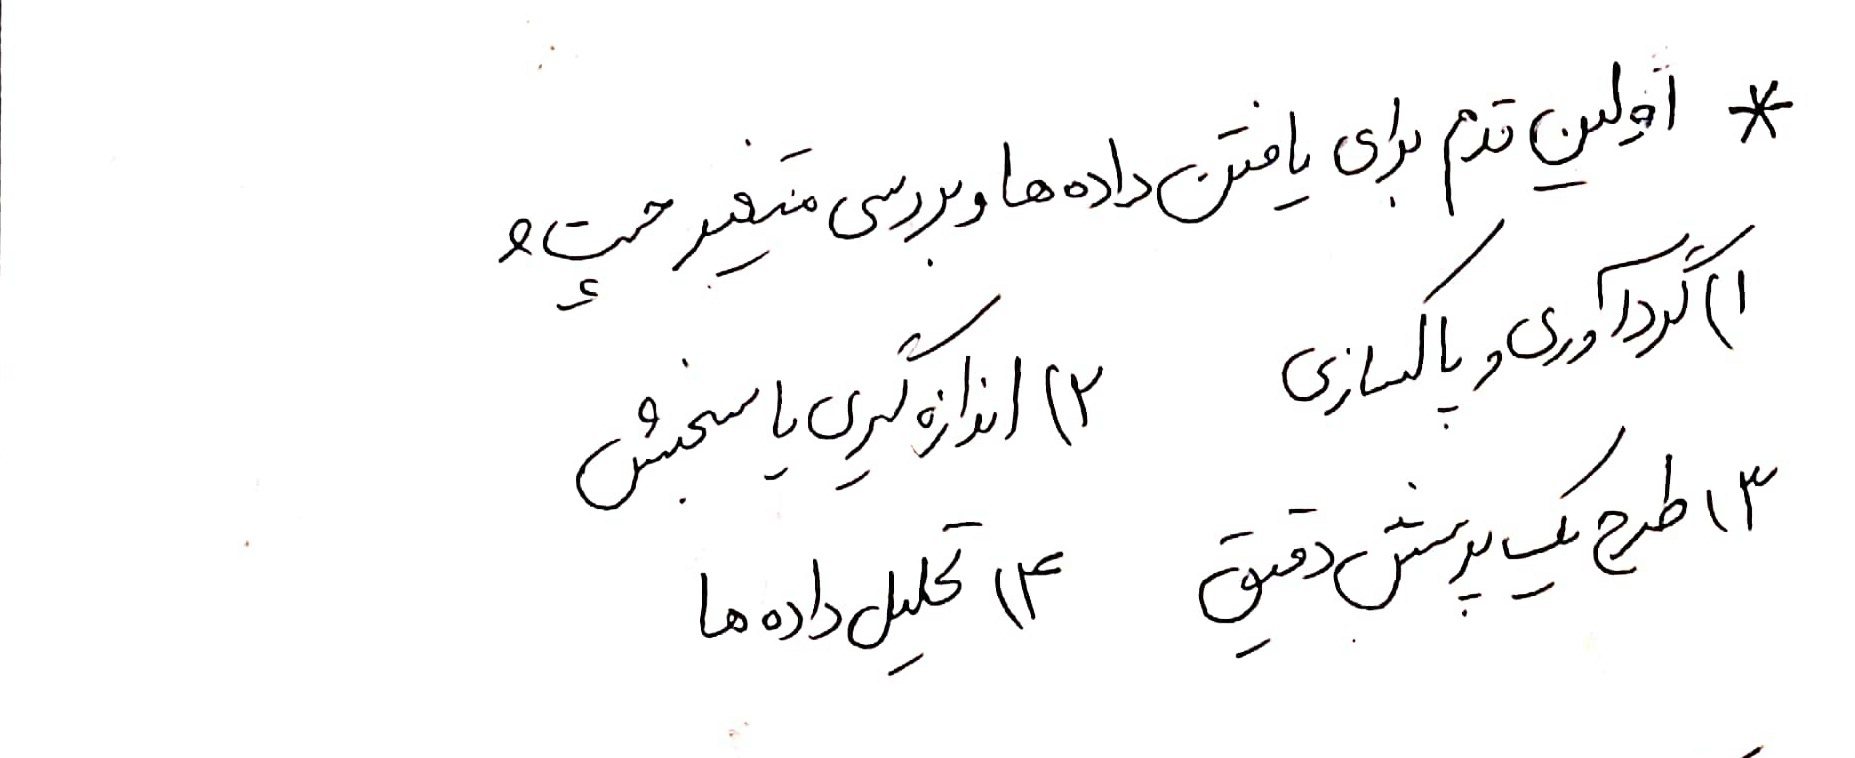 * اولین قدم برای یافتن داده ها و بررسی متغیر چیست؟
۱) گردآوری و پاکسازی ۲) اندازه گیری یا سنجش
۳) طرح یک پرسش دقیق ۴) تحلیل داده ها